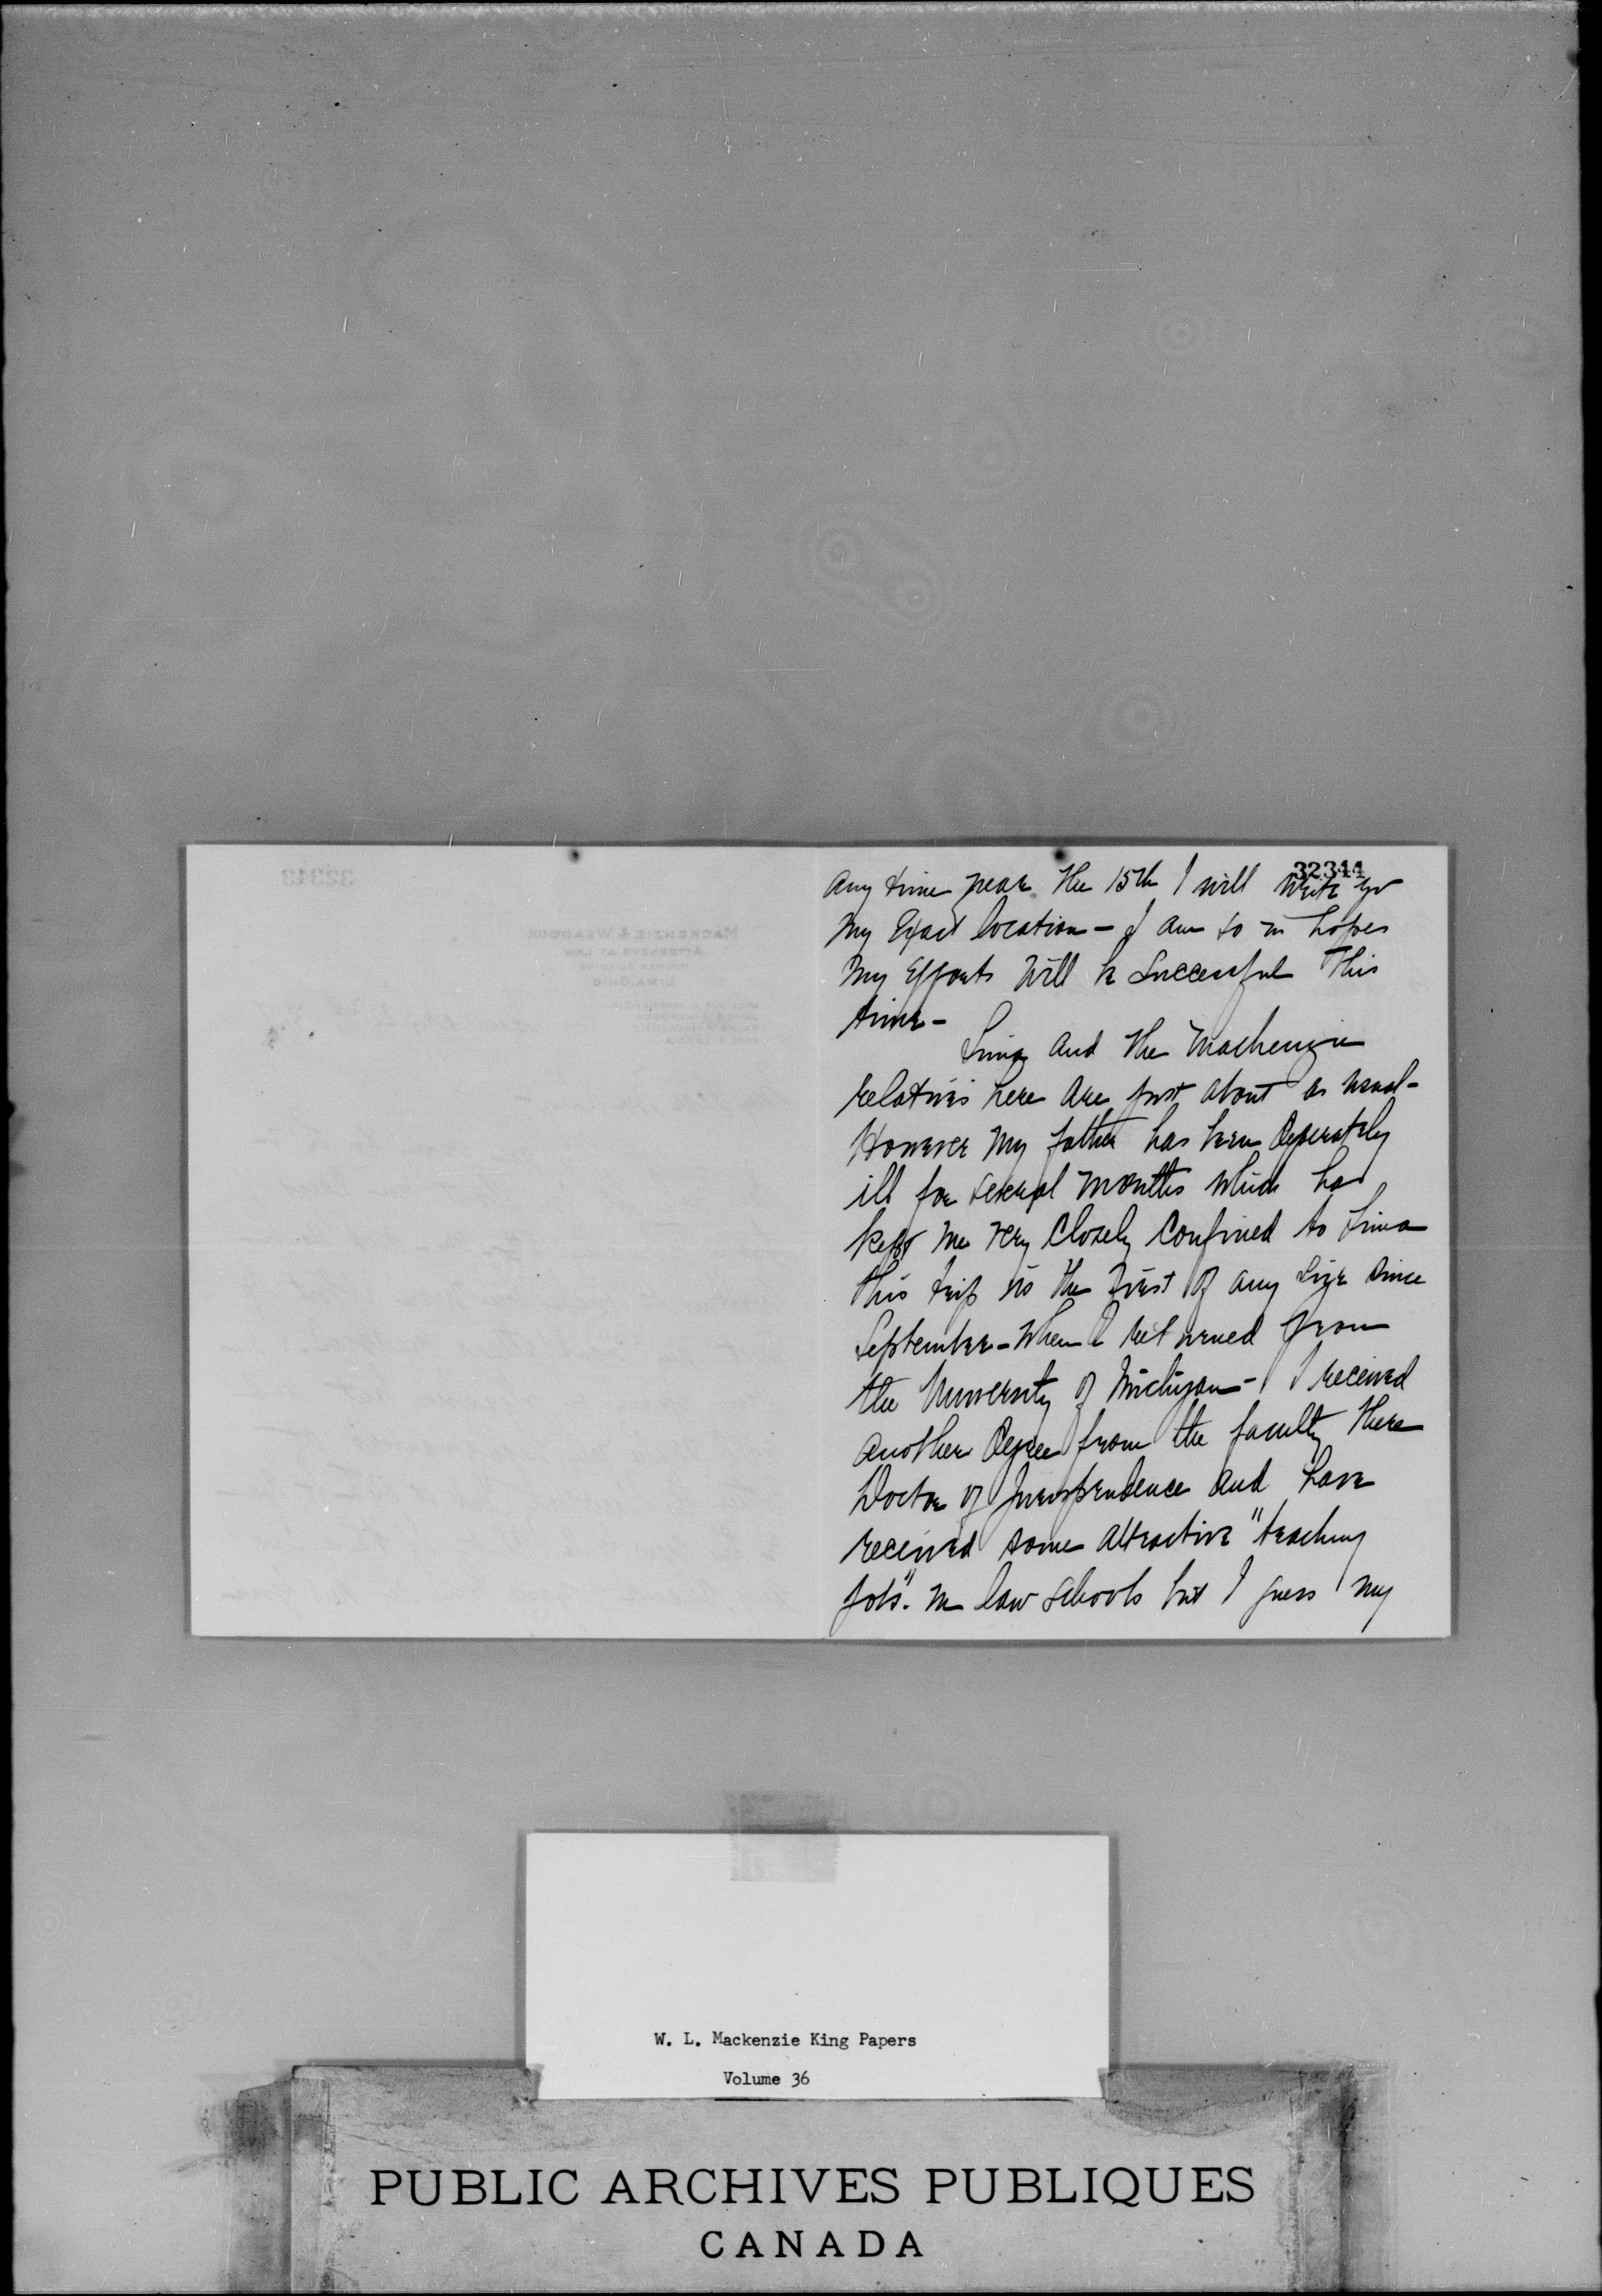 32344
any time near the 15th I will write you
my exact location - I am so in hopes
my efforts will be successful this
time -
Lima and the Mackenzie
relatives here are just about as usual -
However my father has been desperately
ill for several months which has
kept me very closely confined to Lima
this trip is the first of any size since
September - when I returned from
the University of Michigan - I received
another degree from the faculty there
Doctor of Jurisprudence and have
received some attractive "teaching
jobs". in law schools but I guess my
32343
MACKENZIE & WEADOCK
ATTORNEYS AT LAW
LIMA, OHIO
W. L. Mackenzie King Papers
Volume 36
PUBLIC ARCHIVES PUBLIQUES
CANADA